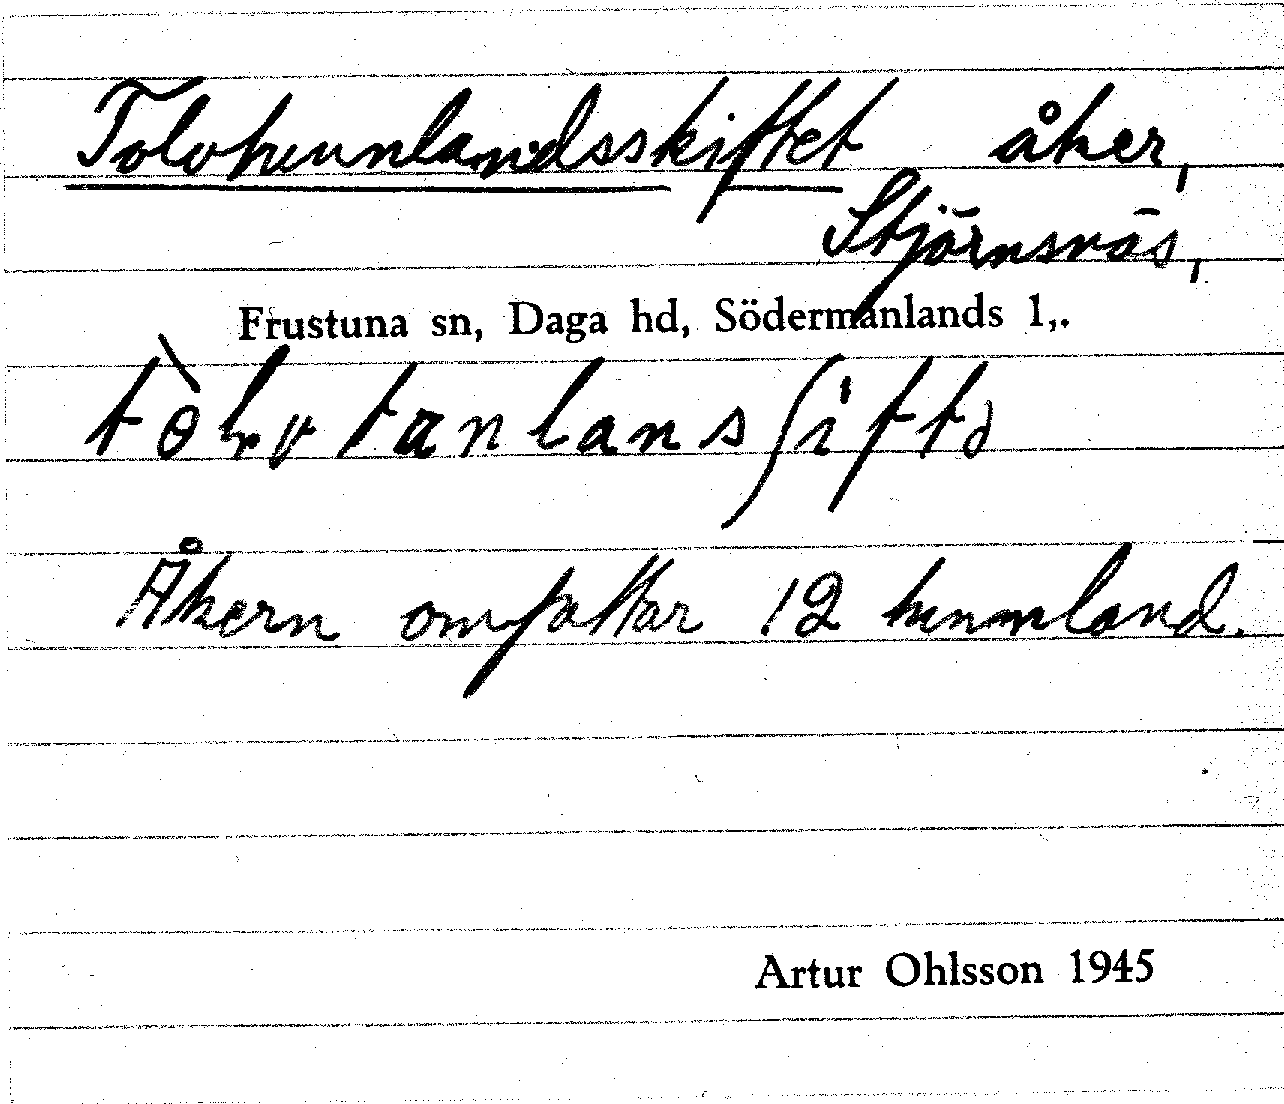 Tolvtunnlandsskiftet åker,
Stjärnsnäs,
Frustuna sn, Daga hd, Södermanlands l,.
Åkern omfattar 12 tunnland.
Artur Ohlsson 1945